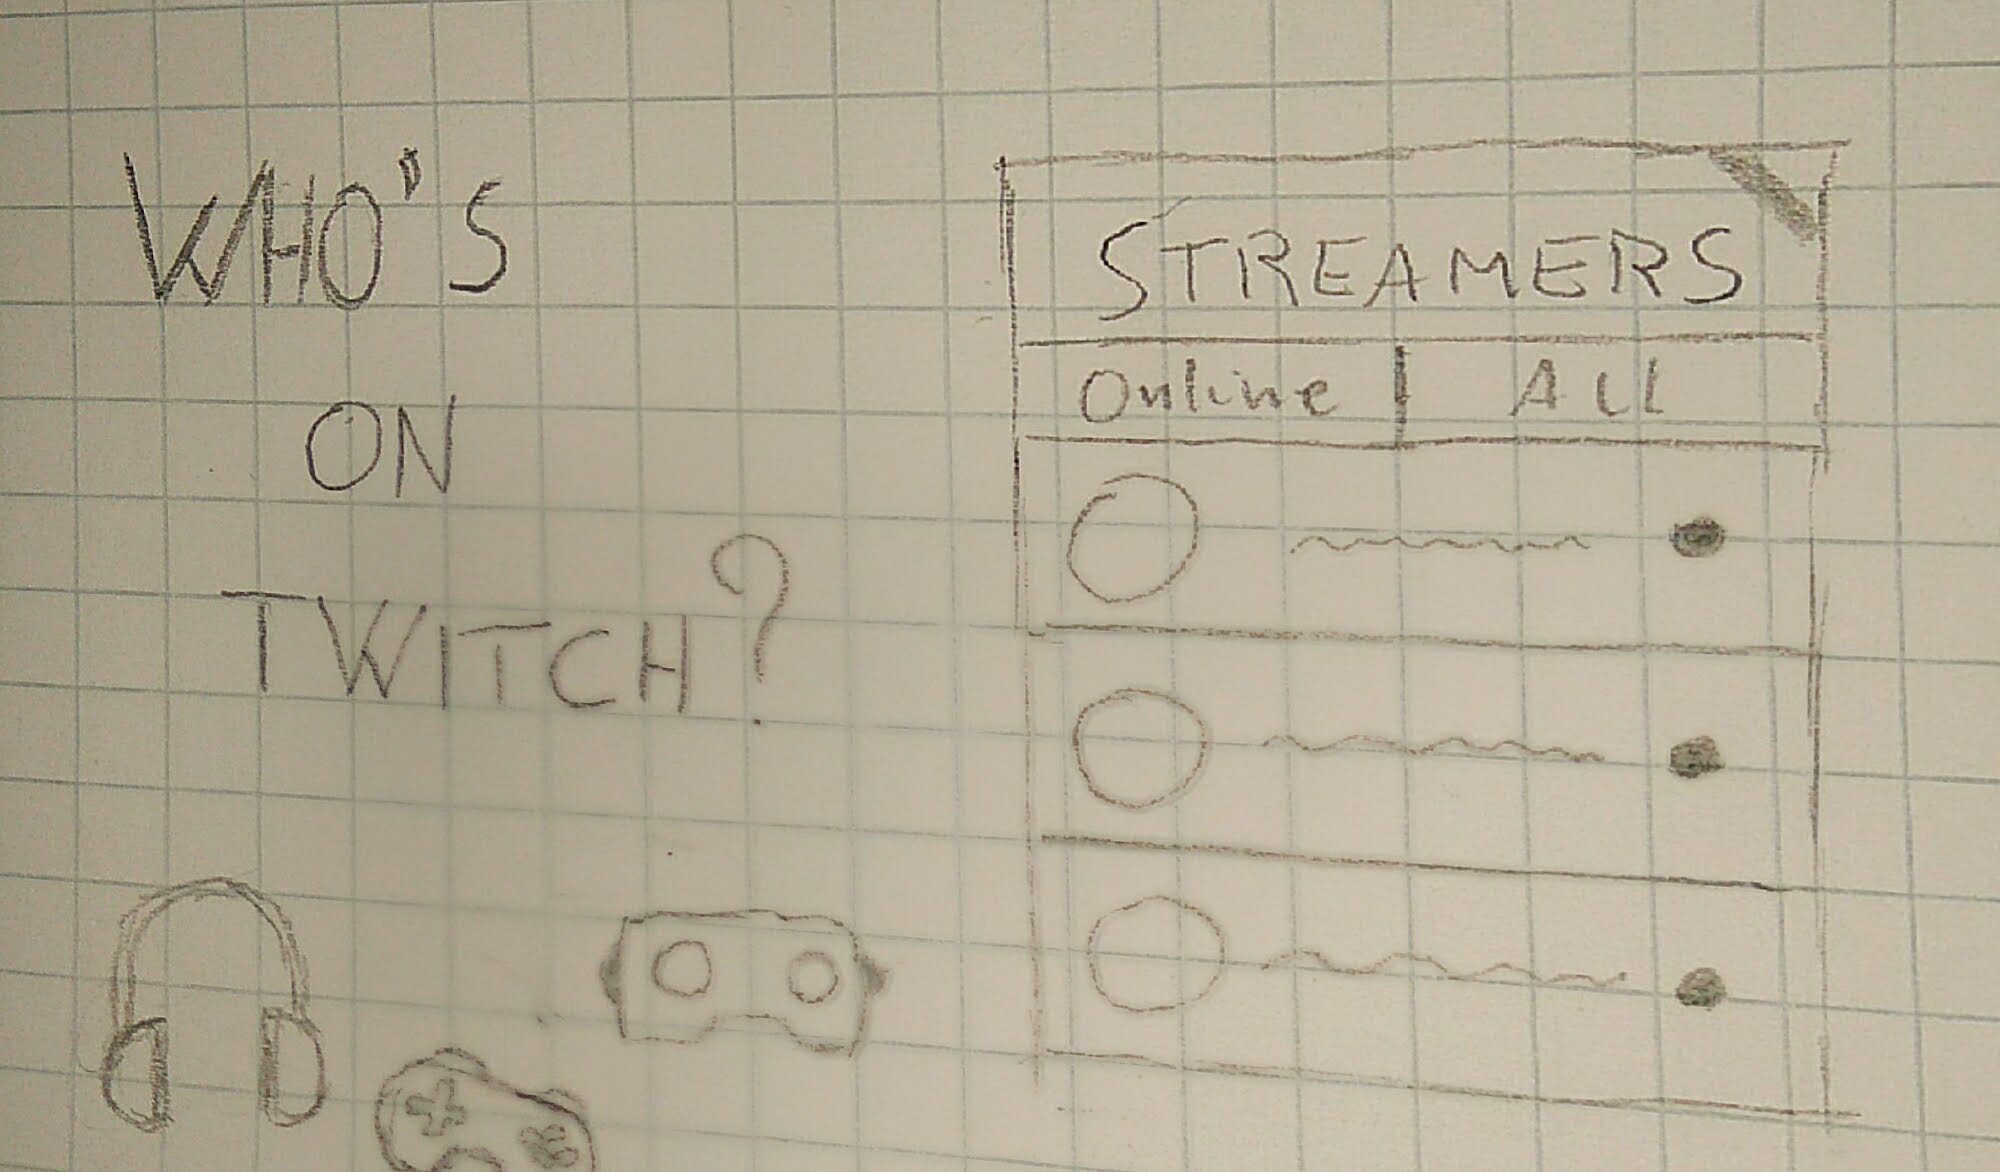 WHO'S
ON
TWITCH?
STREAMERS
Online | All